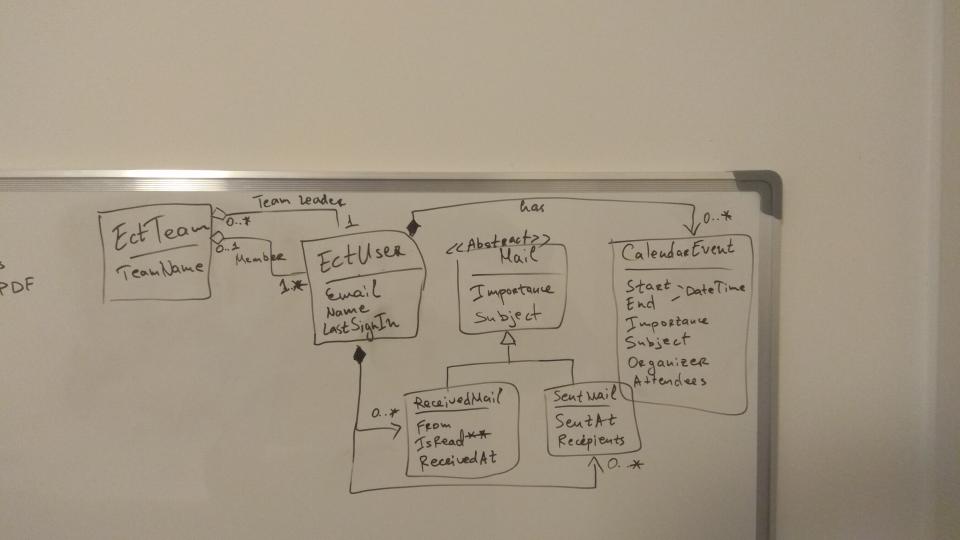 s
PDF
Team Leader
0..*
1
EctTeam
TeamName
0..1
Member
1.*
EctUser
Email
Name
LastSignIn
has
0..*
<<Abstract>>
Mail
Importance
Subject
CalendarEvent
Start
End
DateTime
Importance
Subject
Organizer
Attendees
0..*
ReceivedMail
From
IsRead
ReceivedAt
SentMail
SentAt
Recipients
0..*